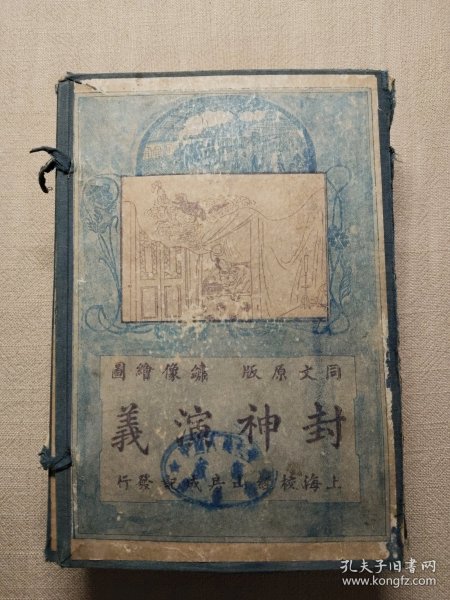 同文原版 繡像繪圖
封神演義
上海校經山房成記發行
孔夫子旧书网
www.kongfz.com